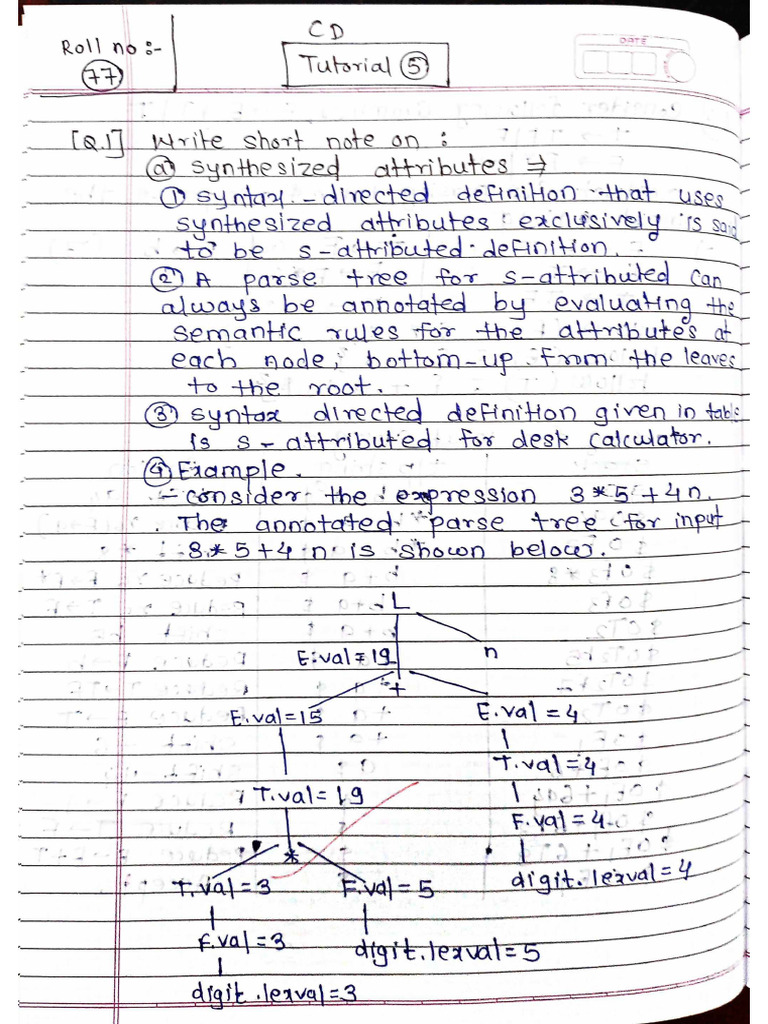 CD
Roll no :-
77
Tutorial 5
DATE
[Q.1] Write short note on :
(a) synthesized attributes ⇒
① syntax -directed definition that uses
synthesized attributes exclusively is said
to be s-attributed definition.
② A parse tree for s-attributed can
always be annotated by evaluating the
semantic rules for the attributes at
each node, bottom-up from the leaves
to the root.
③ syntax directed definition given in table
is s-attributed for desk calculator.
④ Example.
- consider the expression 3*5+4n.
The annotated parse tree for input
8*5+4n is shown below.
L
E.val=19 n
+
E.val=15 E.val=4
T.val=4
T.val=19
F.val=4
*
T.val=3 F.val=5 digit.lexval=4
F.val=3 digit.lexval=5
digit.lexval=3